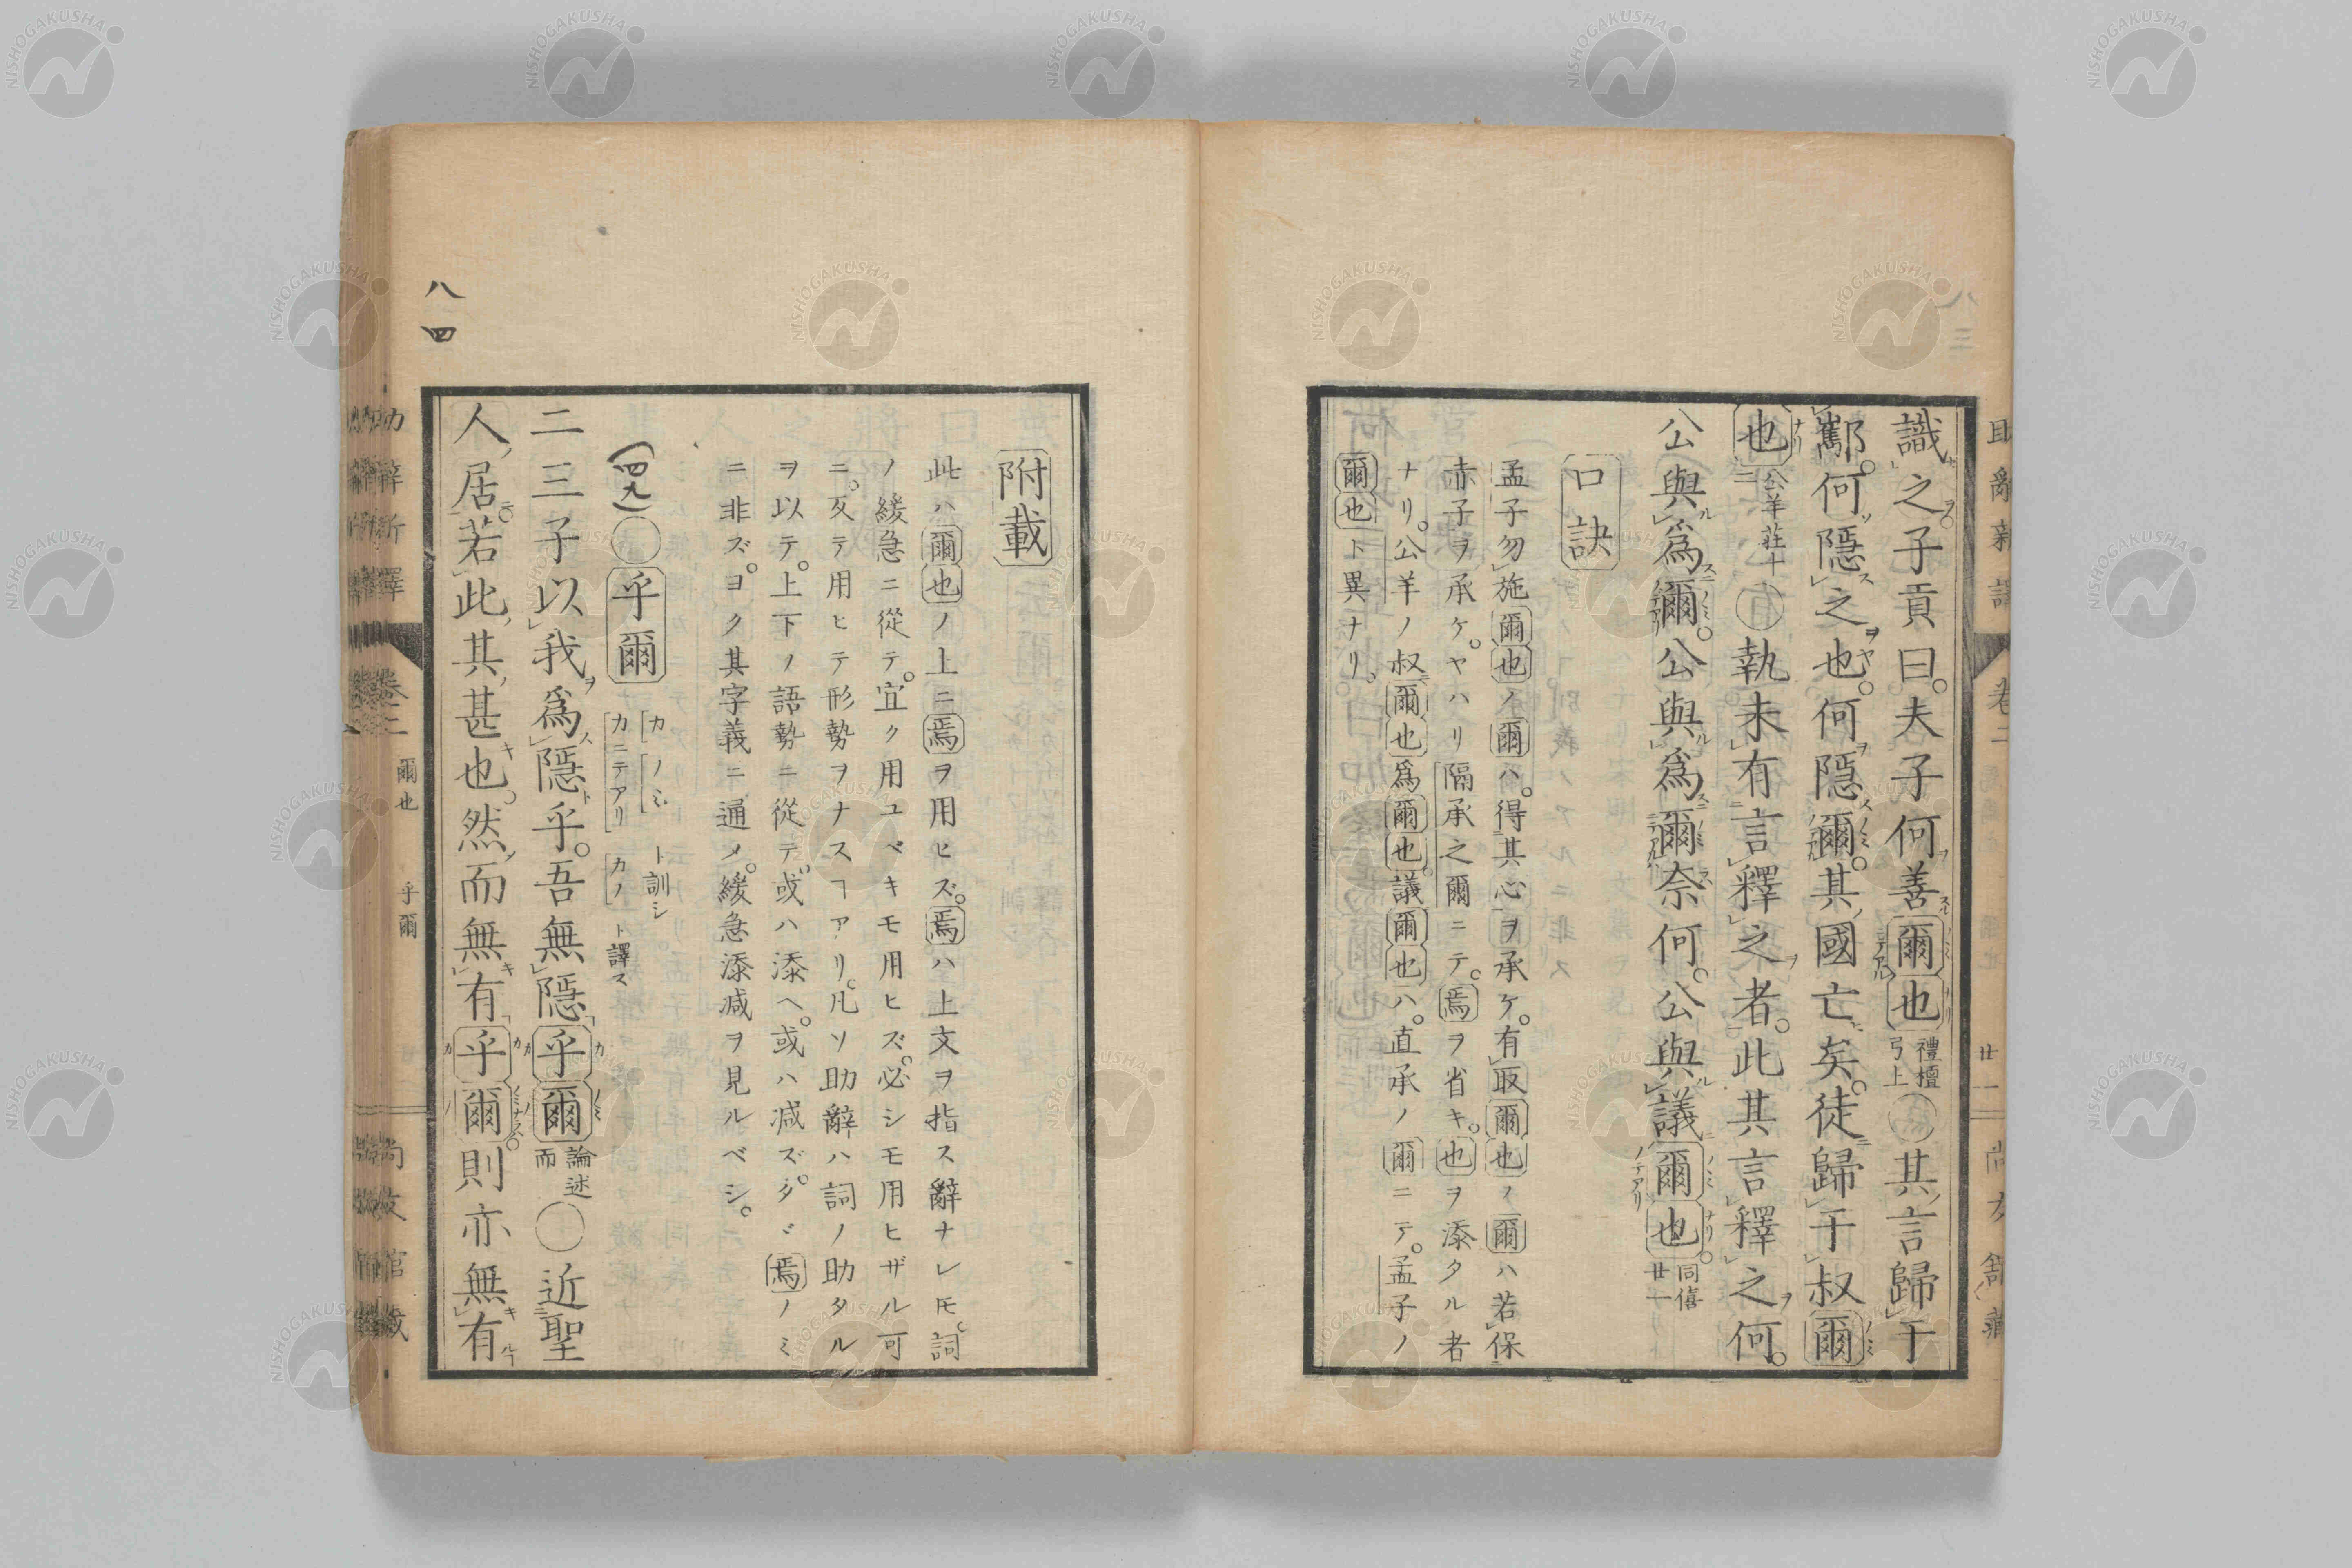 識之子貢曰。夫子何善爾也禮檀弓上○其言歸于
酅。何隱之也。何隱爾。其國亡矣。徒歸于叔爾
也公羊莊十二○執未有言釋之者。此其言釋之何。
公與爲爾。公與爲爾奈何。公與議爾也。同僖廿一
口訣
孟子勿施爾也ノ爾ハ。得其心ヲ承ケ。有取爾也ノ爾ハ若保
赤子ヲ承ケ。ヤハリ隔承之爾ニテ。焉ヲ省キ。也ヲ添タル者
ナリ。公羊ノ叔爾也爲爾也。議爾也ハ。直承ノ爾ニテ。孟子ノ
爾也ト異ナリ。
附載
此ハ爾也ノ上ニ焉ヲ用ヒズ。焉ハ上文ヲ指ス辭ナレ𪜈。詞
ノ緩急ニ從テ。宜ク用ユベキモ用ヒズ。必シモ用ヒザル可
ニ。反テ用ヒテ形勢ヲナスヿアリ。凡ソ助辭ハ詞ノ助タル
ヲ以テ。上下ノ語勢ニ從テ。或ハ添ヘ。或ハ减ズ。タヾ焉ノミ
ニ非ズ。ヨク其字義ニ通メ。緩急添减ヲ見ルベシ。
(四九)○乎爾 カノミ ト訓シ カニテアリ カノ ト譯ス
二三子以我爲隱乎。吾無隱乎爾論述而○近聖
人居。若此其甚也。然而無有乎爾。則亦無有
八四
卷二 爾也 乎爾
NISHOGAKUSHA